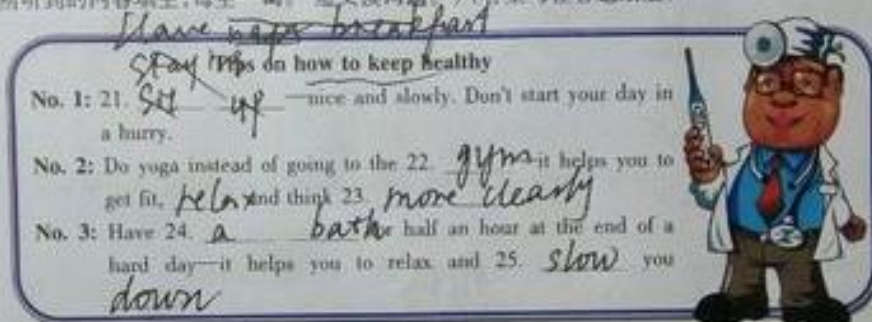 Have naps breakfast
stay Tips on how to keep healthy
No. 1: 21. Sit up —nice and slowly. Don't start your day in
a hurry.
No. 2: Do yoga instead of going to the 22. gym—it helps you to
get fit, relax and think 23. more clearly
No. 3: Have 24. a bath for half an hour at the end of a
hard day—it helps you to relax and 25. slow you
down